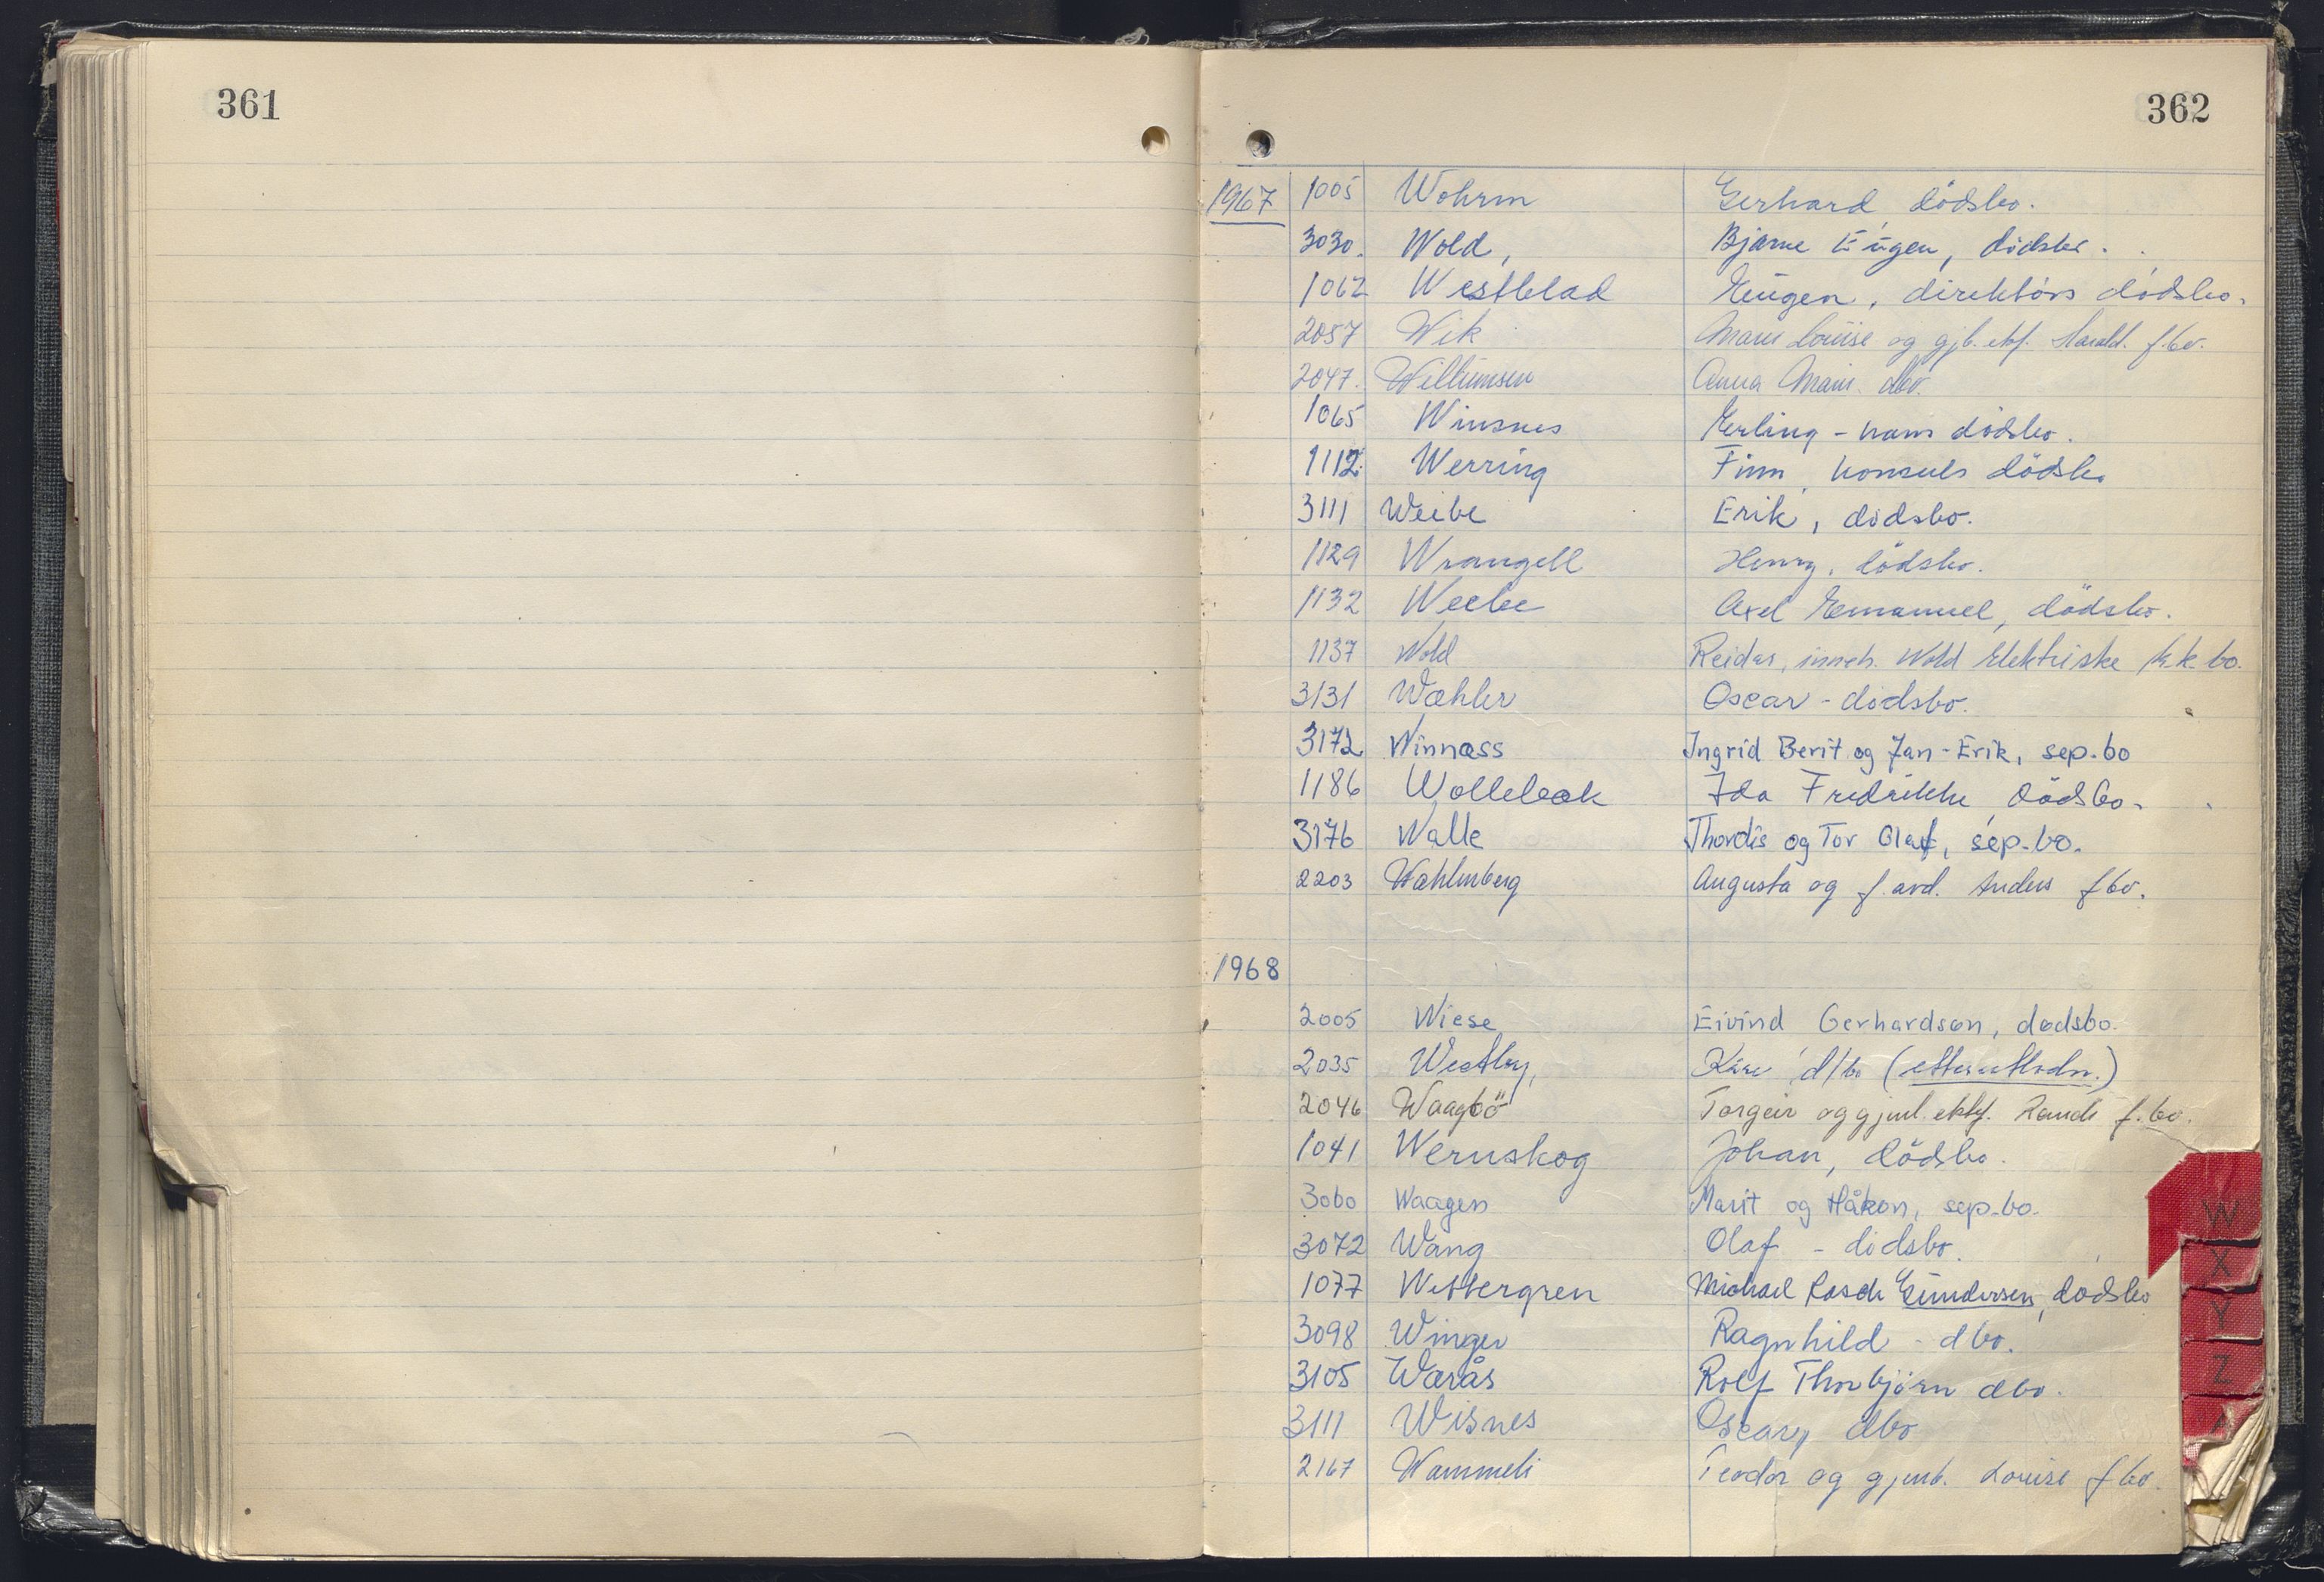 361
362
1967 1005 Wohrm Gerhard, dödsbo.
3030. Wold, Bjarne Eugen, dödsbo.
1062 Westblad Eugen, direktörs dödsbo.
2057 Wik Marie Louise og gjb. ekf. Harald. f.bo.
2047. Willumsen Anna Marie. dbo.
1065 Winsnes Erling - hans dödsbo.
1112. Werring Finn, konsuls dödsbo
3111 Weibe Erik, dödsbo.
1129 Wrangell Henry, dödsbo.
1132 Weebe Axel Emanuel, dödsbo.
1137 Wold Reidar, inneh. Wold Elektriske k.k. bo.
3131 Wæhler Oscar - dödsbo.
3172 Winnass Ingrid Berit og Jan-Erik, sep.bo
1186 Wollebæk Ida Fredrikke, dödsbo.
3176 Walle Thordis og Tor Olaf, sep.bo.
2203 Wahlmberg Augusta og f. avd. Anders f bo.
1968
2005 Wiese Eivind Gerhardson, dødsbo.
2035 Westby, Kåre d/bo
2046 Waagbö Torgeir og gjenl. ektf. Randi f. bo.
1041 Wernskog Johan, dödsbo.
3060 Waagen Marit og Håkon, sep.bo.
3072 Wang Olaf - dödsbo.
1077 Wettergren Michael Rasch Gundersen, dödsbo
3098 Winger Ragnhild - dbo.
3105 Warås Rolf Thorbjörn dbo.
3111 Wisnes Oscar, dbo
2167 Wammeli Teodor og gjenb. Louise f bo.
W
X
Y
Z